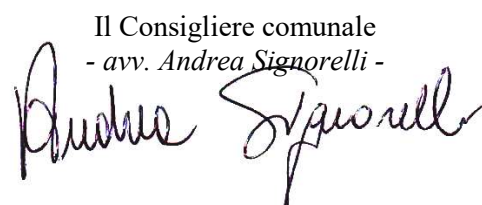 Il Consigliere comunale
- avv. Andrea Signorelli -
Andrea Signorelli